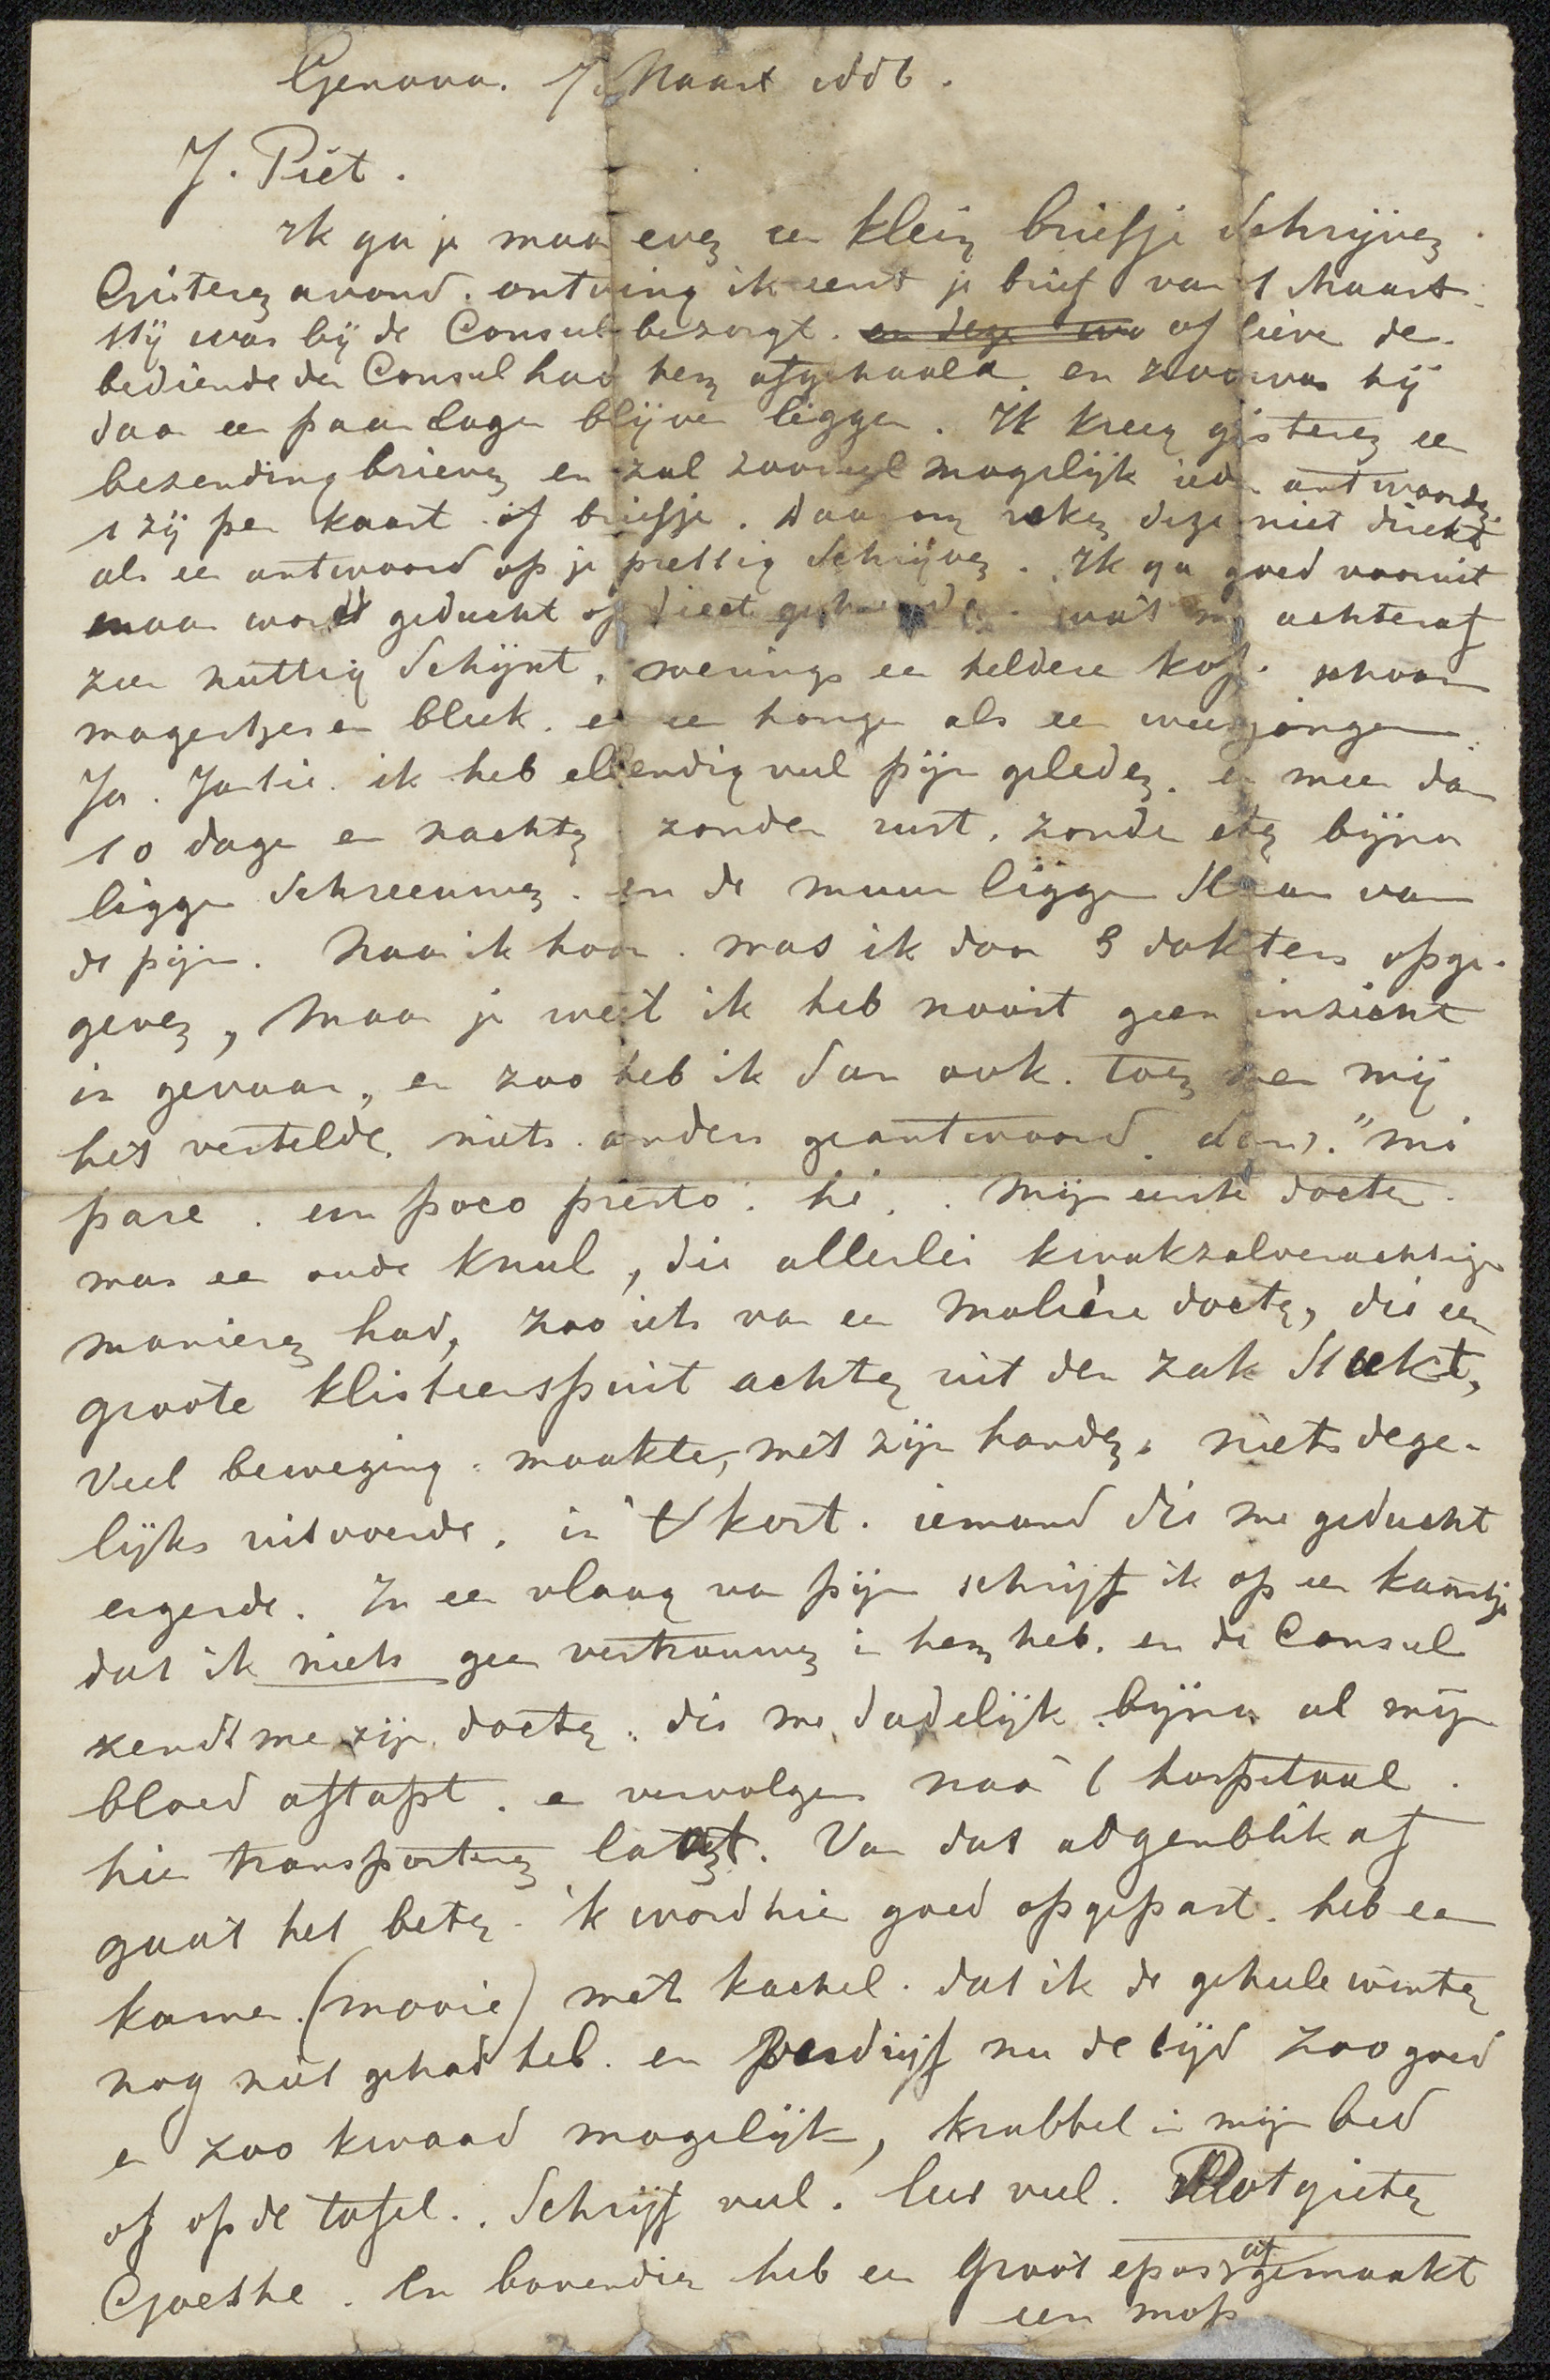 Genova. 7 Maart 1886.
J. Piet.
Ik ga je maar even een klein briefje schrijven.
Gisteren avond. ontving ik eerst je brief van 1 Maart.
Hij was bij de Consul bezorgt. en deze wa of lieve de
bediende der Consul had hem afgehaald. en zoo was hij
daar een paar dagen blijven liggen. Ik kreeg gisteren een
bezending brieven en zal zooveel mogelijk ieder antwoorden.
't zij per kaart of briefje. Daarom reken deze niet direkt
als een antwoord op je prettig schrijven. Ik ga goed vooruit
maar word geducht op dieet gehouden. wat me achteraf
zeer nuttig schijnt, wenings een heldere kop. schoon
magertjes en bleek. en een honger als een weesjongen.
Ja. Jantie. ik heb ellendig veel pijn geleden. en meer dan
10 dagen en nachten zonder rust. zonder eten bijna
liggen schreeuwen. en de muur liggen slaan van
de pijn. Naar ik hoor. was ik door 3 dokters opge-
geven, maar je weet ik heb nooit geen inzicht
in gevaar, en zoo heb ik dan ook. toen men mij
het vertelde. niets anders geantwoord. dan. "mi
pare. un poco presto". hé. . Mijn eerste docter.
was een oude knul, die allerlei kwakzalverachtige
manieren had, zoo iets van een Molière docter, die een
groote klisteerspuit achter uit den zak steekt,
veel beweging maakte, met zijn handen, niets dege-
lijks uitvoerde. in 't kort. iemand die me geducht
ergerde. In een vlaag van pijn schrijf ik op een kaartje
dat ik niets geen vertrouwen in hem heb. en de Consul
zendt me zijn docter. die me dadelijk bijna al mijn
bloed aftapt. en vervolgens naar 't hospitaal.
hier transporteren laat. Van dat oogenblik af
gaat het beter. 'k word hier goed opgepast. heb een
kamer. (mooie) met kachel. dat ik de geheele winter
nog niet gehad heb. en verdrijf nu de tijd zoo goed
en zoo kwaad mogelijk, krabbel in mijn bed
of op de tafel. . Schrijf veel. lees veel. Potgieter
Goethe. En bovendien heb een groot epos afgemaakt
een mop